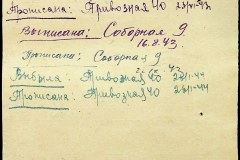 Прописана: Привозная 40 23/VI-43
Выписана: Соборная 9.
16.8.43
Прописана: Соборная 9
Выбыла: Привозная 40 26/II-44
Прописана: Привозная 40 26/II-44